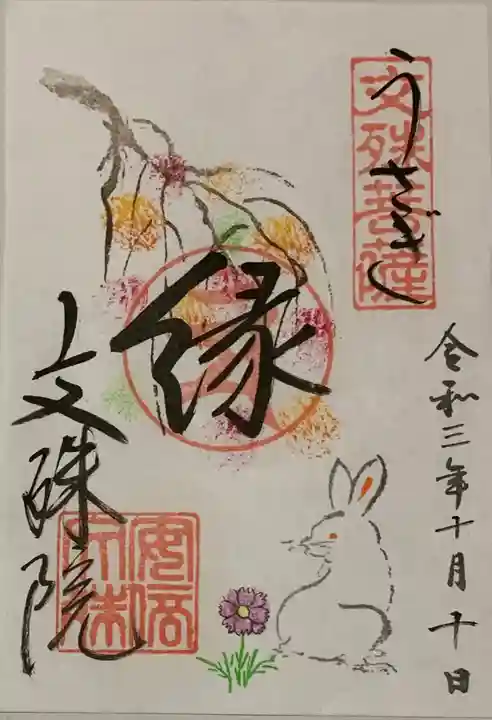 令和三年十月十日
うさぎ
文殊菩薩
縁
文殊院